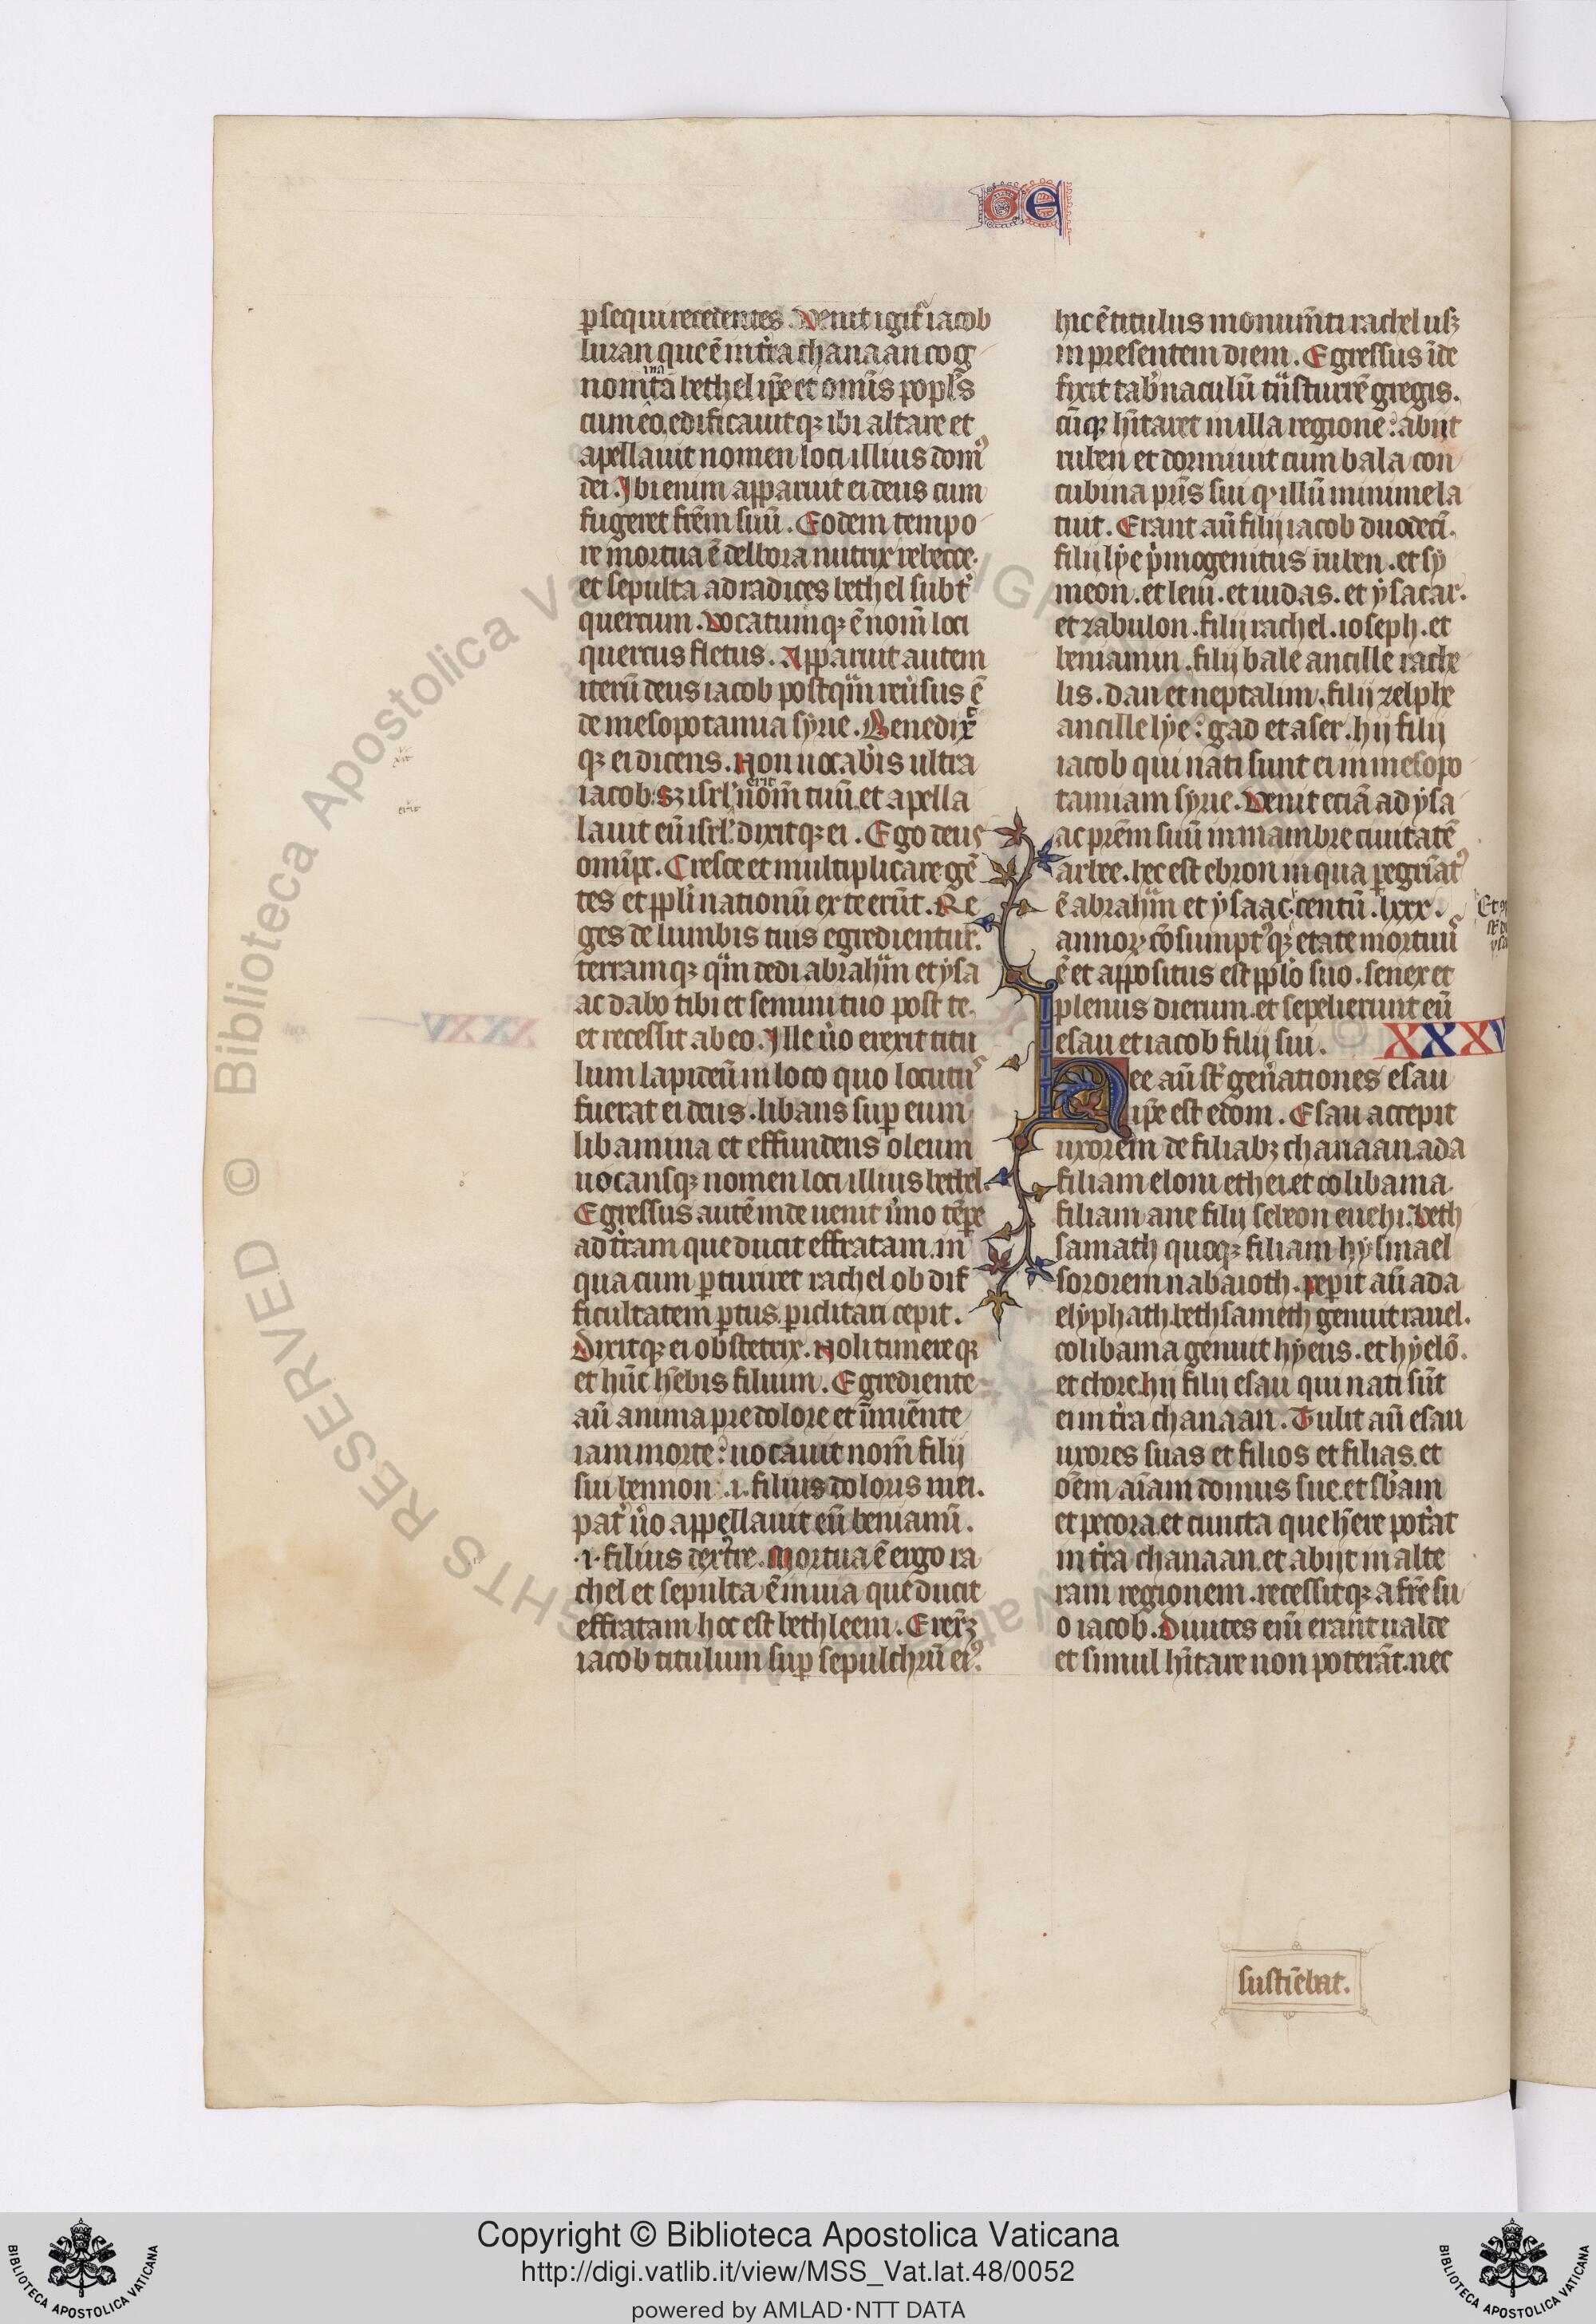 GE
ꝑsequi recedentes. Venit igit̃ iacob
luzan que ē in t̃ra chanaan cog
nom̃ta bethel ip̃e et om̃is popl̃s
ina
cum eo. edificauitqꝫ ibi altare et
apellauit nomen loci illius domꝰ
dei. Ibi enim apparuit ei deus cum
fugeret fr̃em suū. Eodem tempo
re mortua ē delbora nutrix rebecce.
et sepulta ad radices bethel subt̃
quercum. Vocatumqꝫ ē nom̃ loci
quercus fletus. Apparuit autem
iterū deus iacob postq̃m reũsus ē
de mesopotamia syrie. Benedix̃
qꝫ ei dicens. Non uocab̃is ultra
iacob. sꝫ isrl̃ nom̃ tuū. et apella
erit
lauit eū isrl̃. dixitqꝫ ei. Ego deus
om̃ips. Cresce et multiplicare. gē
tes et ppl̃i nationū ex te erūt. Re
ges de lumbis tuis egredientur.
terramqꝫ q̃m dedi abrah̃m et ysa
ac dabo tibi et semini tuo post te.
et recessit ab eo. Ille ũo erexit titu
lum lapideū in loco quo locutũs
fuerat ei deus. libans sup̱ eum
libamina et effundens oleum
uocansqꝫ nomen loci illius bethel.
Egressus autē inde uenit ũno tēpe
ad t̃ram que ducit effratam. in
qua cum ꝑturiret rachel ob dif
ficultatem ꝑtus. ꝑiclitari cepit.
Dixitqꝫ ei obstetrix. Noli timere qꝛ
et hūc h̃ebis filium. Egrediente
aū anima pre dolore et īminēnte
iam morte: uocauit nom̃ filij
sui bennon .i. filius doloris mei.
pat̃ ũo appellauit eū beniamī.
.i. filius dext̃re. Mortua ē ergo ra
chel et sepulta ē in uia que ducit
effratam hoc est bethleem. Erex̃ꝫ
iacob titulum sup̱ sepulchrū eiꝰ.
hic ē titulus monum̃ti rachel usꝫ
in presentem diem. Egressus īde
fixit tab̃naculū t̃ns turrē gregis.
cūqꝫ h̃itaret in illa regione: abijt
ruben et dormiuit cum bala con
cubina pr̃is sui qͥ illū minime la
tuit. Erant aū filij iacob duodecī.
filij lye p̃mogenitus ruben. et sy
meon. et leui. et iudas. et ysacar.
et zabulon. filij rachel. ioseph. et
beniamin. filij bale ancille rache
lis. dan et neptalim. filij zelphe
ancille lye: gad et aser. hij filij
iacob qui nati sunt ei in mesopo
tamiam syrie. Venit eciā ad ysa
ac pr̃em suū in mambre ciuitatē
arbee. hec est ebron in qua ꝑegrinatꝰ
ē abrah̃m et ysaac. centū. lxxx.
annoꝝ cōsumptꝰqꝫ etate mortuũs
ē et appositus est ppl̃o suo. senex et
plenus dierum. et sepelierunt eū
esau et iacob filij sui. XXXV
Hee aū sūt geñationes esau
ip̃e est edom. Esau accepit
uxorem de filiabꝫ chanaan. ada
filiam elom ethei. et colibama
filiam ane filij sebeon euehi. Beth
samath quoqꝫ filiam hysmael
sororem nabaioth. Peperit aū ada
elyphath. bethsameth genuit rauel.
colibama genuit hyeus. et hyelō.
et chore. hij filij esau qui nati sūt
ei in t̃ra chanaan. Tulit aū esau
uxores suas et filios et filias. et
om̃em aīam domus sue. et sb̃am
et pecora. et cuncta que h̃ere pot̃at
in t̃ra chanaan. et abijt in alte
ram regionem. recessitqꝫ a fr̃e su
o iacob. Diuites enī erant ualde
et simul h̃itare non poterāt. nec
sustiēbat.
© Biblioteca Apostolica Vaticana
RIGHTS RESERVED
Copyright © Biblioteca Apostolica Vaticana
http://digi.vatlib.it/view/MSS_Vat.lat.48/0052
powered by AMLAD·NTT DATA
BIBLIOTECA APOSTOLICA VATICANA
BIBLIOTECA APOSTOLICA VATICANA